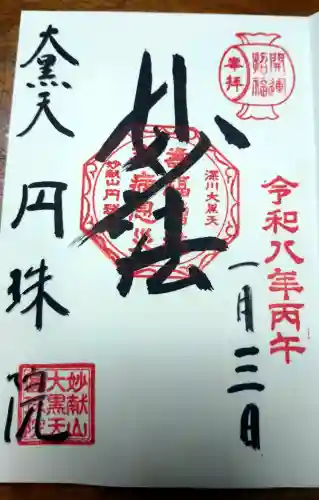 開運
招福
奉拝
令和八年丙午
一月三日
妙法
深川大黒天
妙献山円珠
大黒天
円珠院
妙献山
大黒天